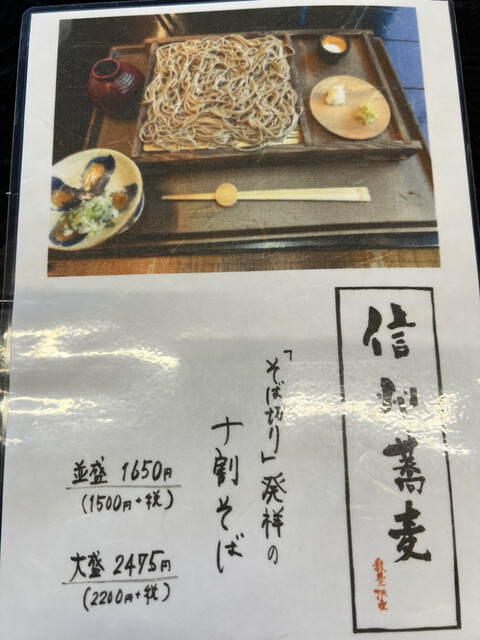 信州蕎麦
数量限定
「そば切り」発祥の
十割そば
並盛 1650円
(1500円+税)
大盛 2475円
(2200円+税)